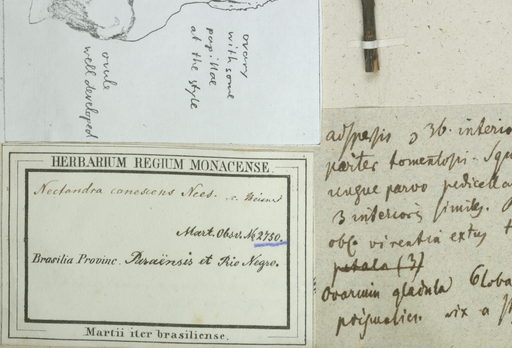 ovary
with some
papillae
at the style
ovule
well developed
HERBARIUM REGIUM MONACENSE.
Nectandra canescens Nees.
Mart. Obs. № 2730.
Brasilia Provinc. Paraënsis et Rio Negro.
Martii iter brasiliense.
adspersis 3 b. interio
pariter tomentosis. Squ
ungue parvo pedicella
3 interioris similes.
obsc. virentia extus
petala (3)
Ovarium glabrum Globo
vix a